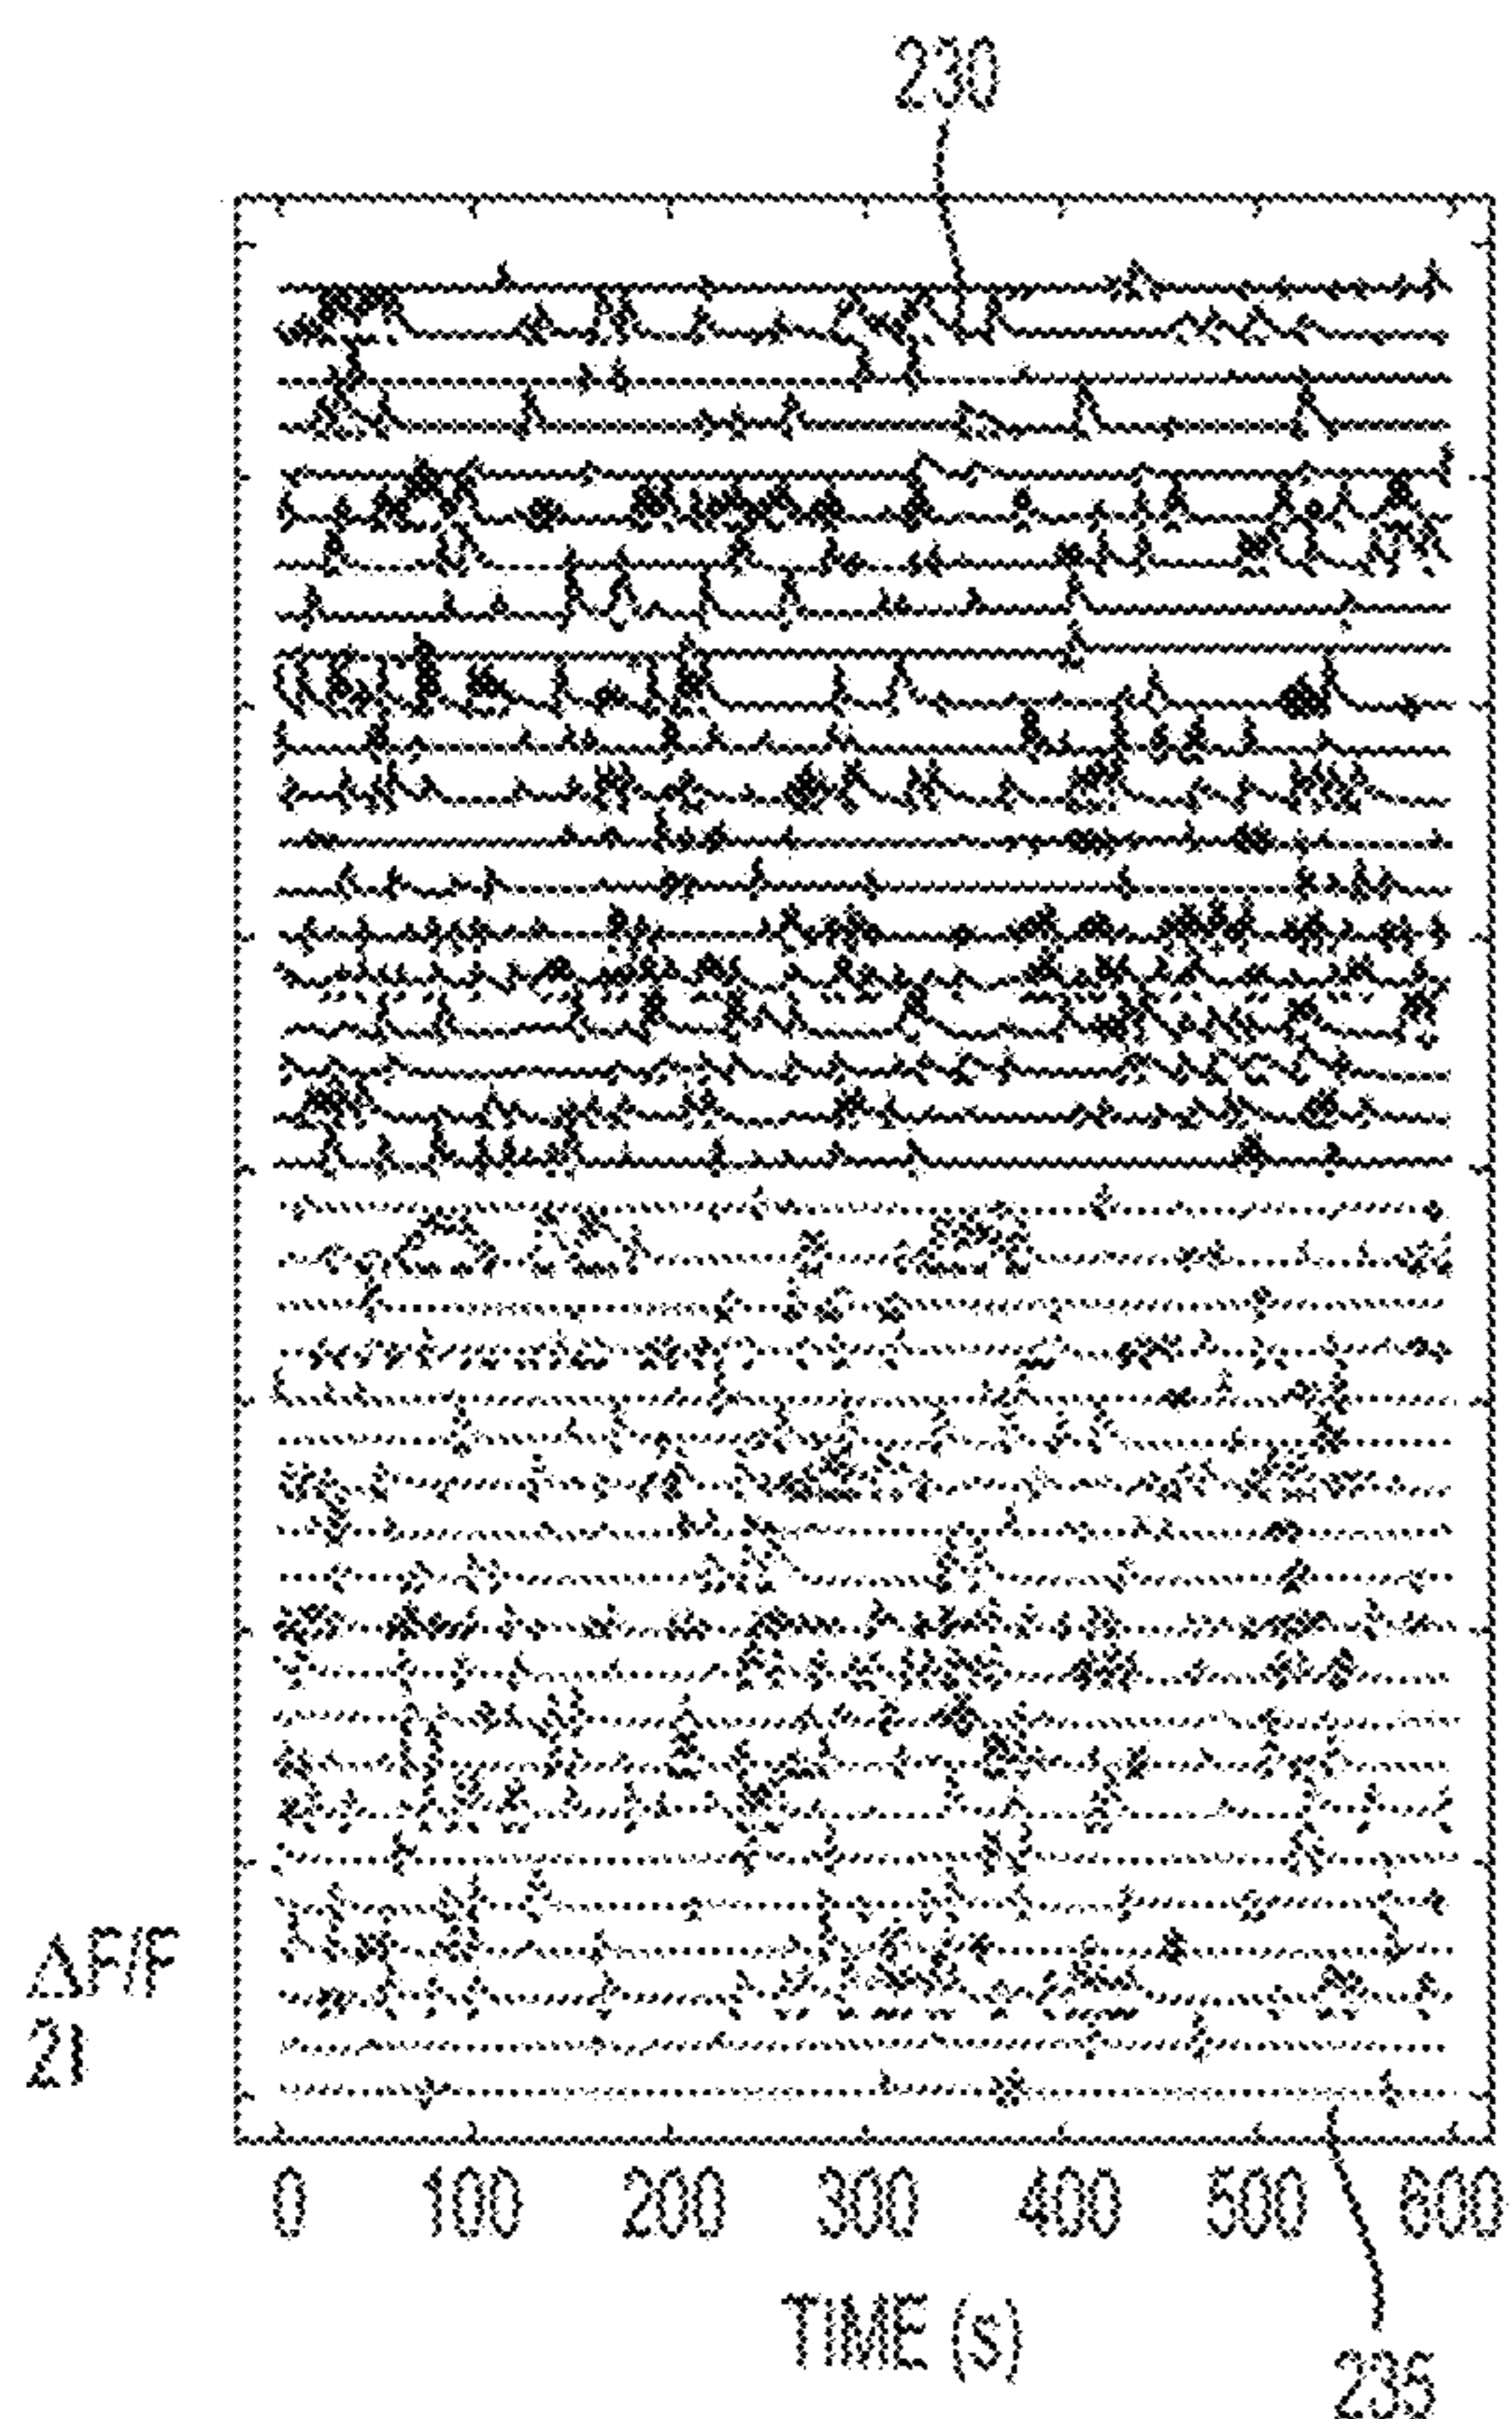 230
ΔF/F
21
0 100 200 300 400 500 600
TIME (s)
235